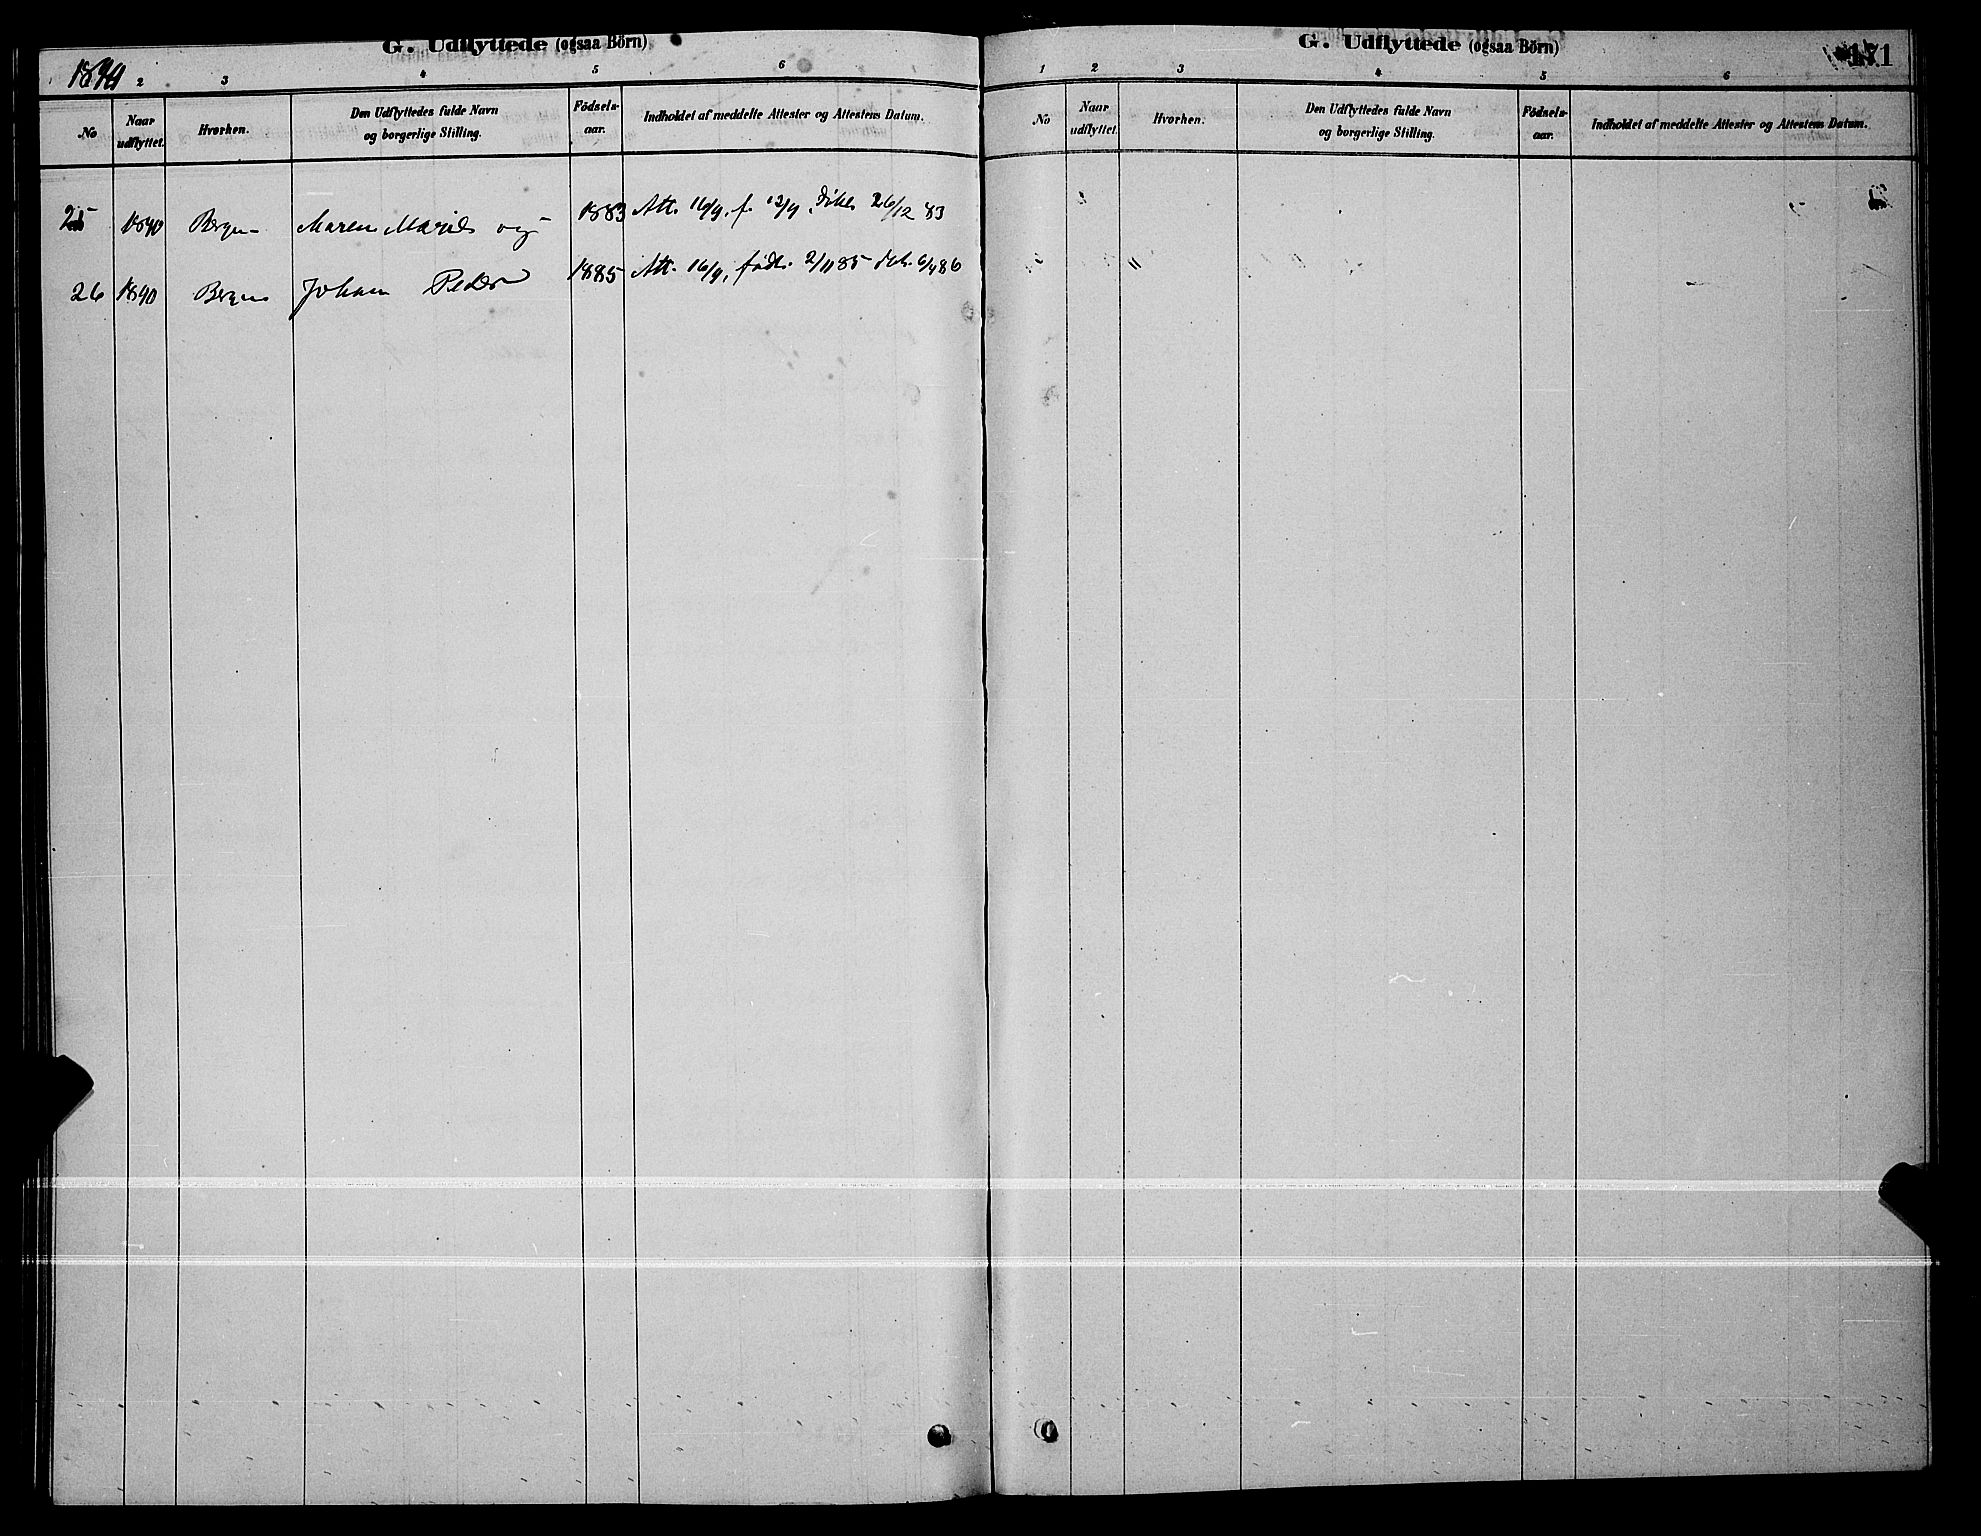 G. Udflyttede (ogsaa Börn)
2 3 4 5 6
No
Naar udflyttet.
Hvorhen.
Den Udflyttedes fulde Navn og borgerlige Stilling.
Födsels-aar.
Indholdet af meddelte Attester og Attestens Datum.
25 1890 Bergen Maren Marie og 1883 Att. 16/9, f. 12/9, 26/12 83
26 1890 Bergen Johan Peder 1885 Att. 16/9, født 2/11 85 6/4 86
G. Udflyttede (ogsaa Börn)
171
1 2 3 4 5 6
No
Naar udflyttet.
Hvorhen.
Den Udflyttedes fulde Navn og borgerlige Stilling.
Födsels-aar.
Indholdet af meddelte Attester og Attestens Datum.